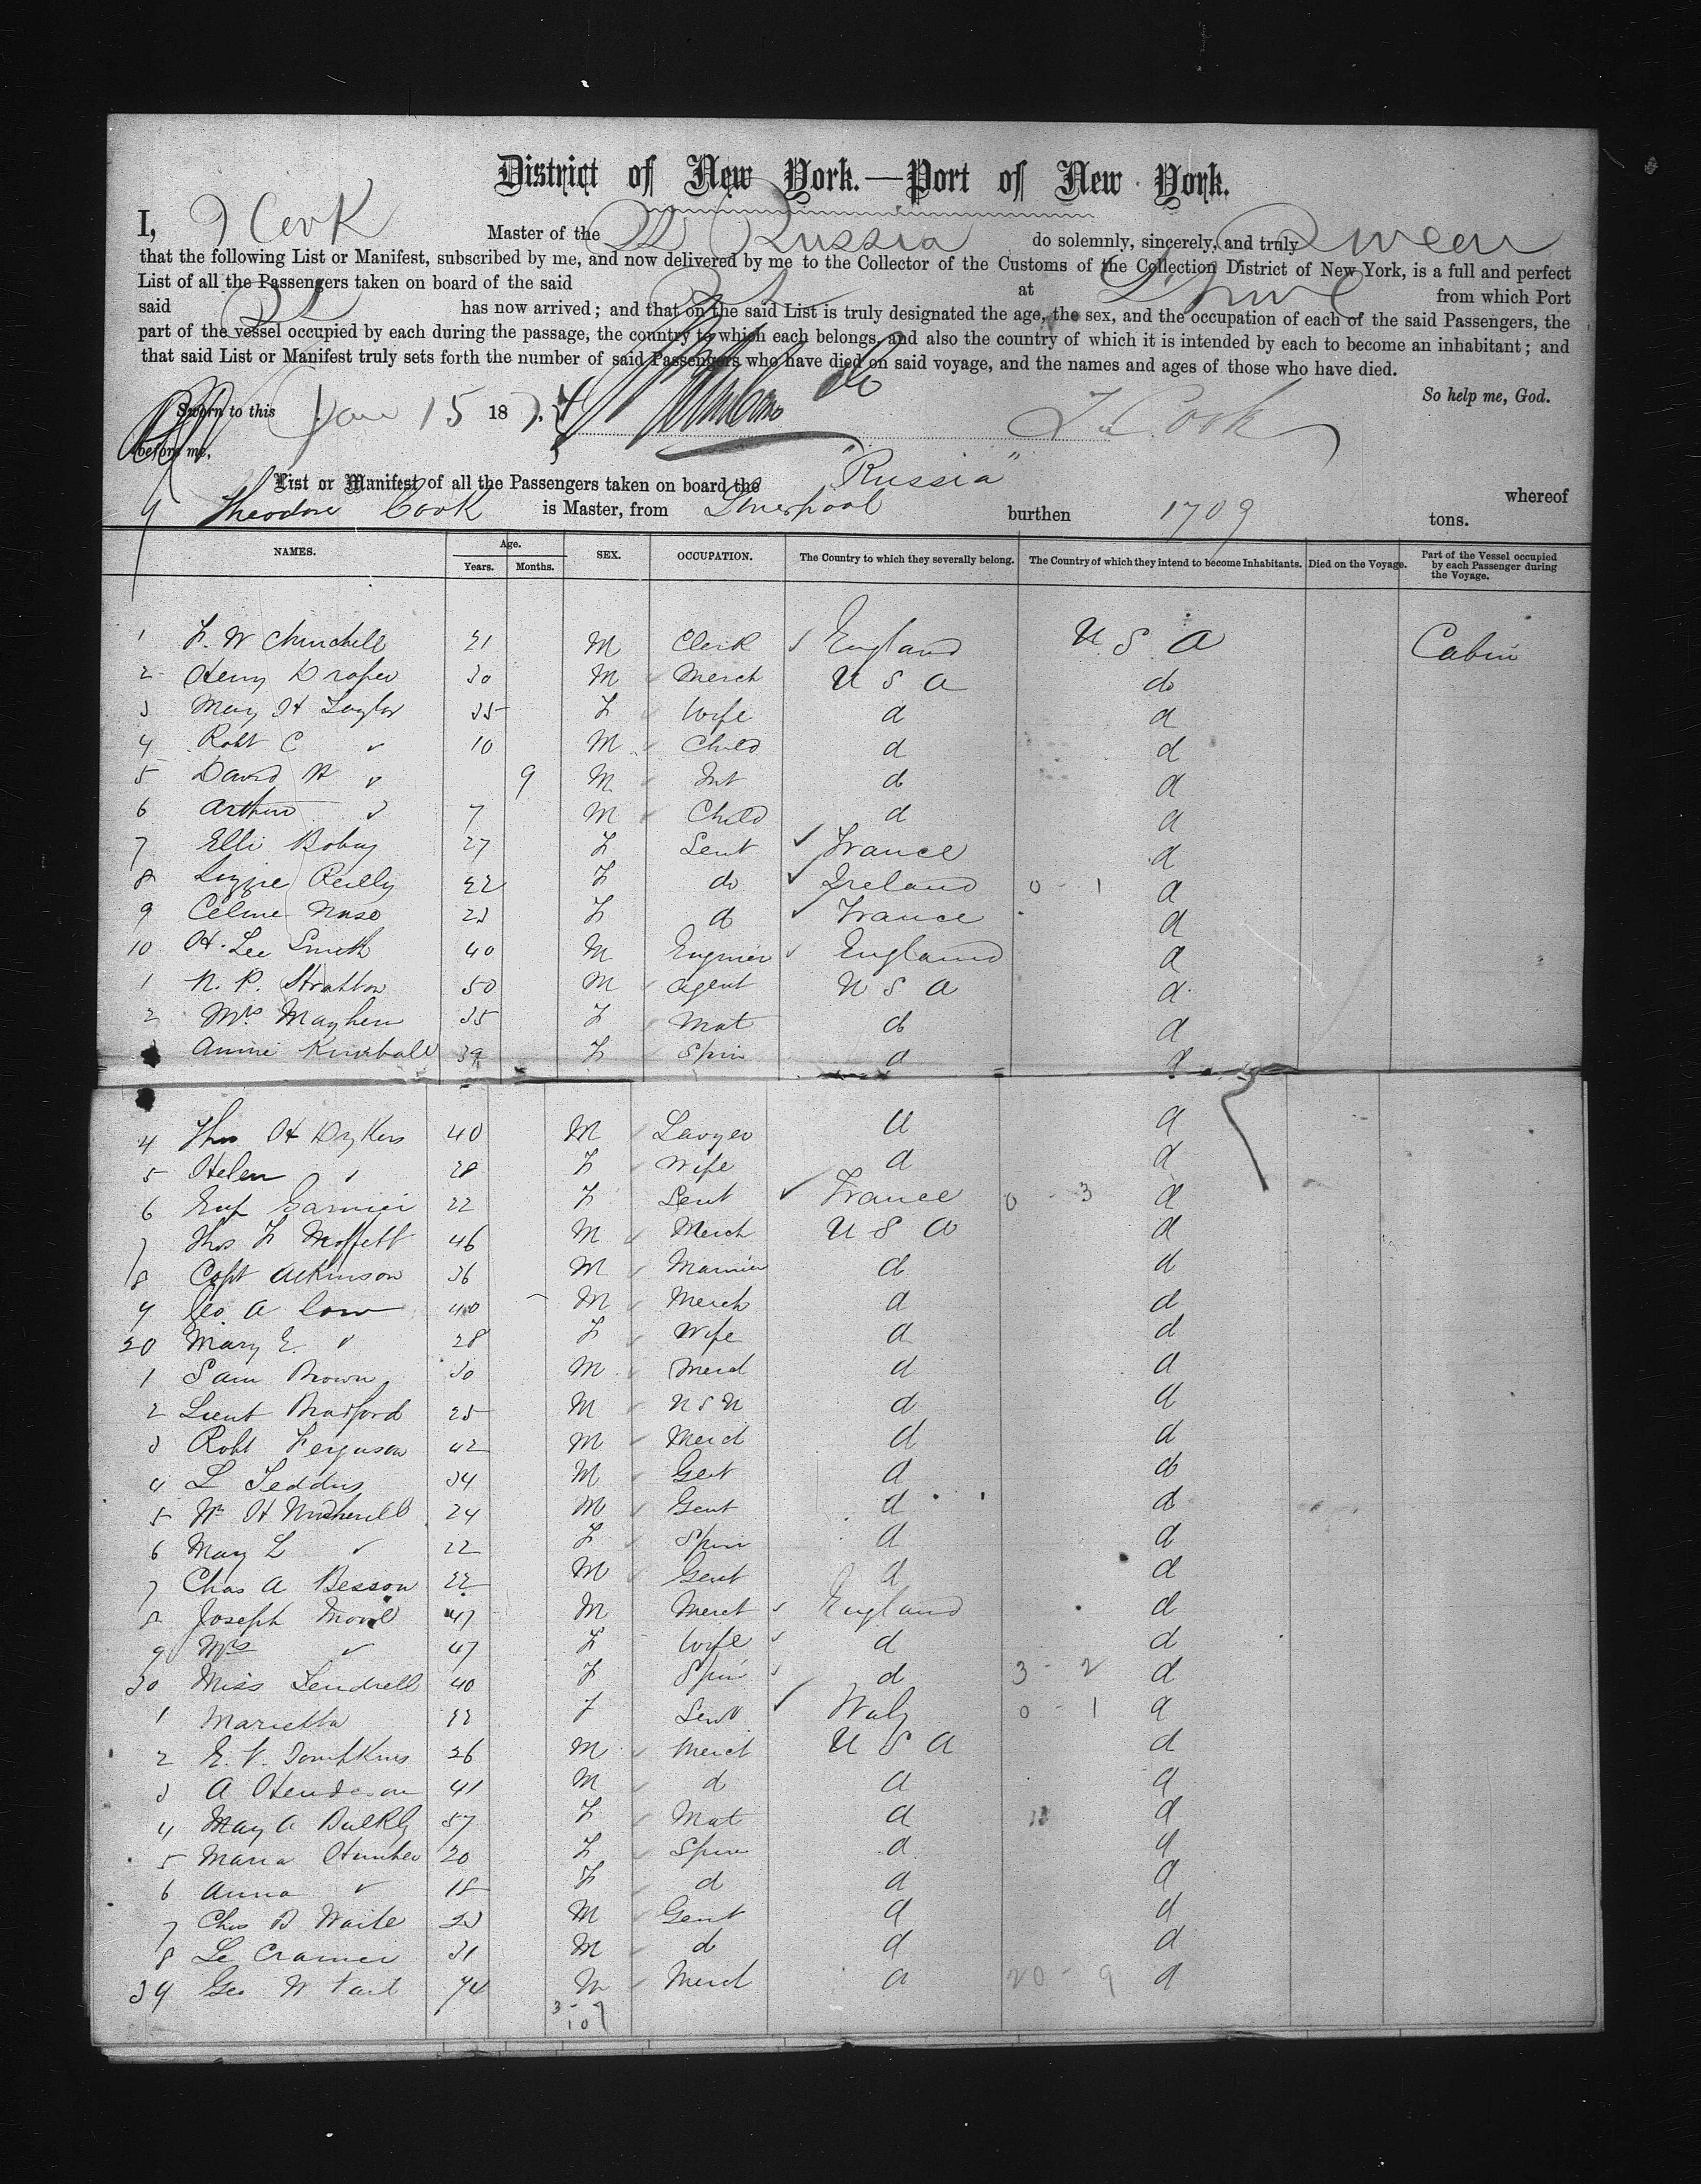 District of New York.—Port of New York.
I, T Cook Master of the SS Russia do solemnly, sincerely, and truly Swear
that the following List or Manifest, subscribed by me, and now delivered by me to the Collector of the Customs of the Collection District of New York, is a full and perfect
List of all the Passengers taken on board of the said at L'pool from which Port
said has now arrived; and that on the said List is truly designated the age, the sex, and the occupation of each of the said Passengers, the
part of the vessel occupied by each during the passage, the country to which each belongs, and also the country of which it is intended by each to become an inhabitant; and
that said List or Manifest truly sets forth the number of said Passengers who have died on said voyage, and the names and ages of those who have died.
So help me, God.
Sworn to this Jan 15 187 4 T Cook
before me,
List or Manifest of all the Passengers taken on board the "Russia" whereof
Theodore Cook is Master, from Liverpool burthen 1709 tons.
NAMES. Age. Years. Months. SEX. OCCUPATION. The Country to which they severally belong. The Country of which they intend to become Inhabitants. Died on the Voyage. Part of the Vessel occupied by each Passenger during the Voyage.
1 F. W Churchill 21 M Clerk England U S A Cabin
2 Henry Draper 30 M Merch U S A do
3 Mary H Taylor 35 F Wife d d
4 Robt C " 10 M Child d d
5 David H " 9 M Inf do d
6 Arthur " 7 M Child d d
7 Elli Bobay 27 F Servt France d
8 Lizzie Reilly 22 F do Ireland 0 - 1 d
9 Celine 23 F do France d
10 H. Lee Smith 40 M Engineer England d
1 N. P. Stratton 50 M Agent U S A d
2 Mrs. Mayhew 35 F Mat do d
Annie Kimball 39 F Spin d d
4 Thos H Dykers 40 M Lawyer d d
5 Helen " 28 F Wife d d
6 Eup Garnier 22 F Servt France 0 - 3 d
7 Thos F Moffett 46 M Merch U S A d
8 Capt Atkinson 36 M Mariner do d
9 Geo. A Low 40 M Merch d d
20 Mary E. " 28 F Wife d d
1 Sam Brown 30 M Merch d d
2 Lieut Bradford 25 M U S N d d
3 Robt Ferguson 42 M Merch d d
4 L Teddus 34 M Gent d do
5 Wm H Witherell 24 M Gent d do
6 Mary L " 22 F Spin d d
7 Chas A Besson 22 M Gent d d
8 Joseph 47 M Merch England d
9 Mrs " 47 F Wife d d
30 Miss 40 F Spin d 3 - 2 d
1 Marietta 22 F Servt Italy 0 - 1 d
2 E. V. Tompkins 26 M Merch U S A d
3 A Henderson 41 M d d d
4 Mary A Bulkly 57 F Mat d d
5 Maria Hunter 20 F Spin d d
6 Anna " 18 F d d d
7 Chas B Waite 23 M Gent d d
8 Le Cramer 31 M do d d
39 Geo W 74 M Merch d 20 - 9 d
3 - 7
10